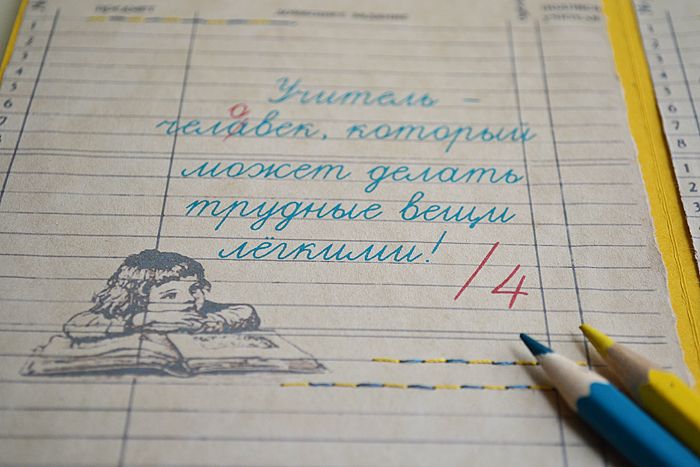 Учитель –
о
челавек, который
может делать
трудные вещи
лёгкими!
/4